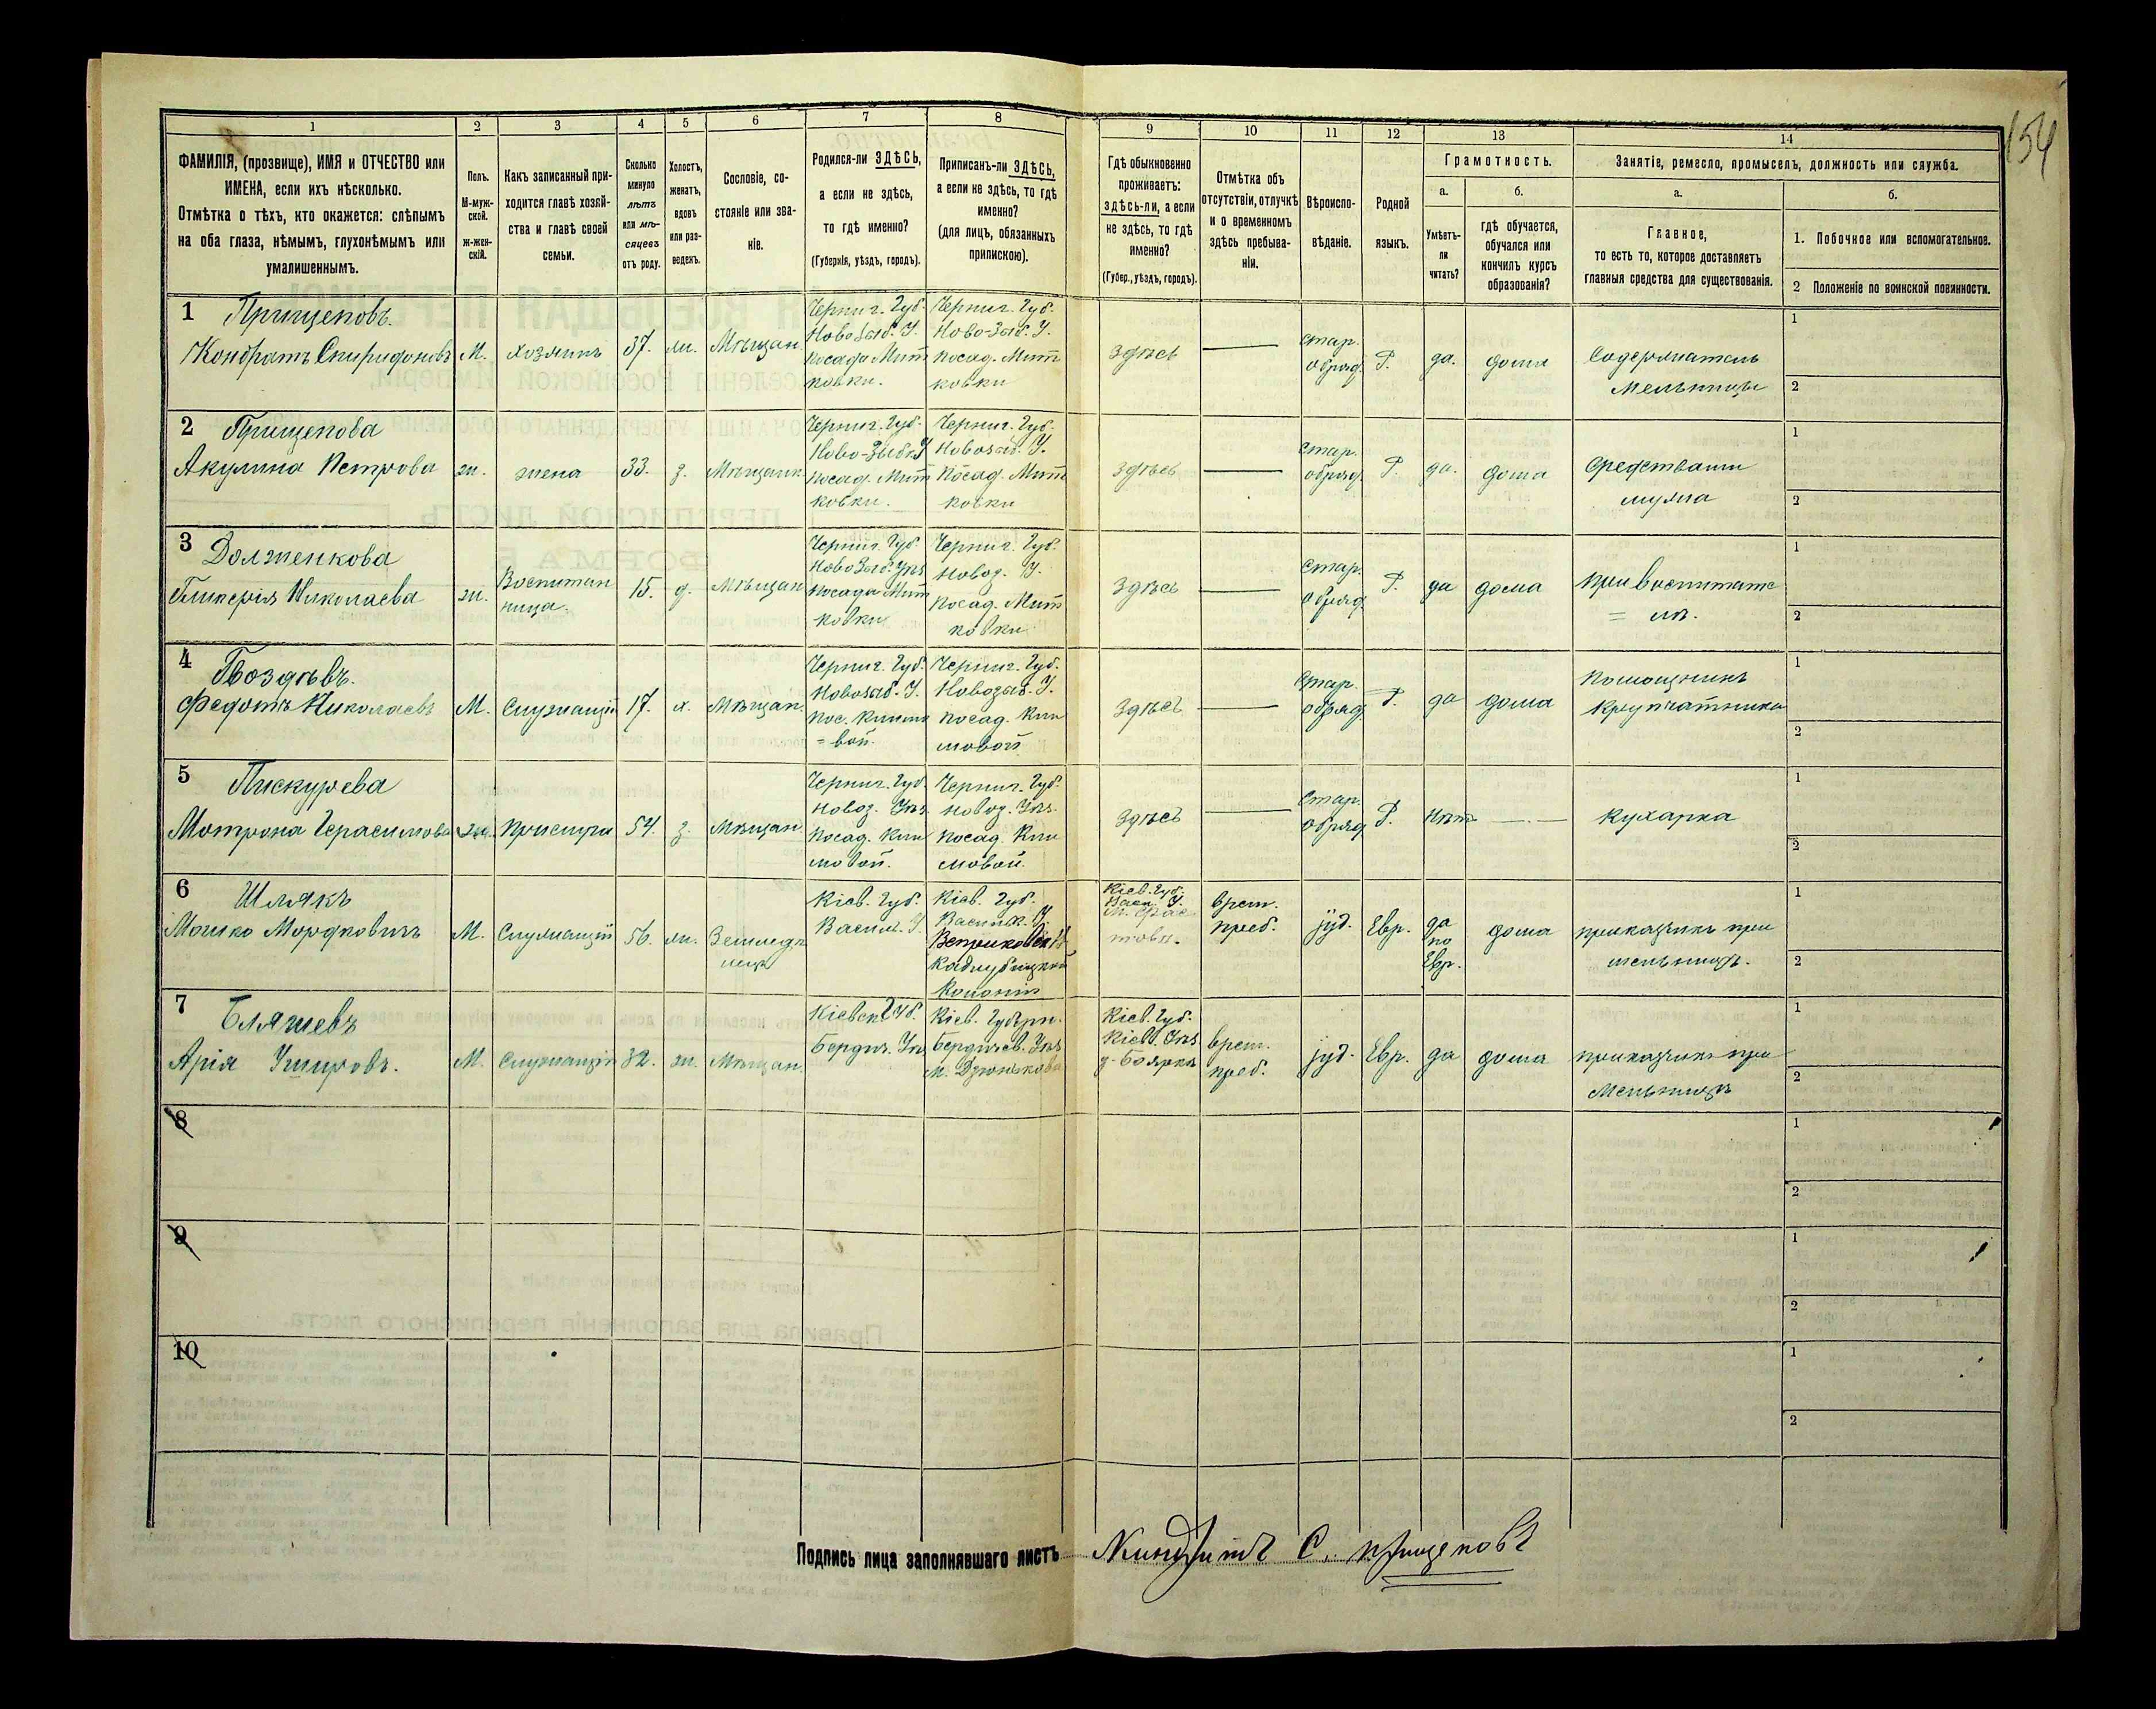 154
1 2 3 4 5 6 7 8 9 10 11 12 13 14
ФАМИЛІЯ, (прозвище), ИМЯ и ОТЧЕСТВО или
ИМЕНА, если ихъ нѣсколько.
Отмѣтка о тѣхъ, кто окажется: слѣпымъ
на оба глаза, нѣмымъ, глухонѣмымъ или
умалишеннымъ.
Полъ.
М-муж-
ской.
ж-жен-
скій.
Какъ записанный при-
ходится главѣ хозяй-
ства и главѣ своей
семьи.
Сколько
минуло
лѣтъ
или мѣ-
сяцевъ
отъ роду.
Холостъ,
женатъ,
вдовъ
или раз-
веденъ.
Сословіе, со-
стояніе или зва-
ніе.
Родился-ли ЗДѢСЬ,
а если не здѣсь,
то гдѣ именно?
(Губернія, уѣздъ, городъ).
Приписанъ-ли ЗДѢСЬ,
а если не здѣсь, то гдѣ
именно?
(для лицъ, обязанныхъ
припискою).
Гдѣ обыкновенно
проживаетъ:
здѣсь-ли, а если
не здѣсь, то гдѣ
именно?
(Губер., уѣздъ, городъ).
Отмѣтка объ
отсутствіи, отлучкѣ
и о временномъ
здѣсь пребыва-
ніи.
Вѣроиспо-
вѣданіе.
Родной
языкъ.
Грамотность.
а.
Умѣетъ-
ли
читать?
б.
гдѣ обучается,
обучался или
кончилъ курсъ
образованія?
Занятіе, ремесло, промыселъ, должность или служба.
а.
Главное,
то есть то, которое доставляетъ
главныя средства для существованія.
б.
1. Побочное или вспомогательное.
2 Положеніе по воинской повинности.
1 Прищеповъ.
Кондратъ Спиридоновъ
М.
хозяинъ
37.
ж.
Мѣщан.
Черниг. Губ.
Новозыб. У.
посада Мит
ковки.
Черниг. Губ.
Ново-Зыб. У.
посад. Мит
ковки
здѣсь
стар.
обряд.
Р.
да.
дома
Содержатель
мельницы
1
2
2 Прищепова
Акулина Петрова
ж.
жена
33.
з.
Мѣщанк.
Черниг. Губ.
Ново-Зыбк У
посад. Мит
ковки.
Черниг. Губ.
Новозыб. У.
Посад. Мит
ковки
здѣсь
стар.
обряд.
Р.
да.
дома
средствами
мужа
1
2
3 Долженкова
Гликерія Николаева
ж.
Воспитан
ница.
15.
д.
Мѣщан
Черниг. Губ.
Новозыб. Уѣз
посада Мит
ковки
Черниг. Губ.
Новоз. У.
Посад. Мит
ковки
Здѣсь
Стар.
обряд.
Р.
да
дома
при воспитате
= лѣ.
1
2
4 Гвоздѣвъ.
Федотъ Николаевъ
М.
Служащій
17.
х.
Мѣщан.
Черниг. Губ.
Новозыб. У.
пос. Климо
= вой.
Черниг. Губ.
Новозыб. У.
посад. Кли
мовой
здѣсь
Стар.
обряд.
Р.
да
дома
помощникъ
крупчатника
1
2
5 Пискурева
Мотрона Герасимова
ж.
прислуга
54.
з.
Мѣщан.
Черниг. Губ.
Новоз. Уѣз.
Посад. Кли
мовой.
Черниг. Губ.
новоз. Уѣз.
посад. Кли
мовой.
здѣсь
Стар.
обряд.
Р.
нѣтъ
кухарка
1
2
6 Шлякъ
Мошко Мордковичъ
М.
Служащій
56.
ж.
Земледѣ
лецъ
Кіев. Губ.
Васил. У.
Кіев. Губ.
Василк. У.
Кадлубицкой
Колоніи
Кіев. Губ.
Васи. У.
м. Фас
това.
врем.
преб.
іуд.
Евр.
да
по
Евр.
дома
приказчикъ при
мельницѣ.
1
2
7 Бляшевъ
Арія
М.
Служащій
32.
ж.
Мѣщан.
Кіевск Губ.
Бердич. Уѣз
Кіев. Губерн.
Бердичев. Уѣз
м. Дзюнькова
Кіев. Губ.
Кіев. Уѣз
д. Боярка
врем.
преб.
іуд.
Евр.
да
дома
приказчикъ при
мельницѣ
1
2
8
1
2
9
1
2
10
1
2
Подпись лица заполнявшаго листъ Киндратъ С. прищеповъ